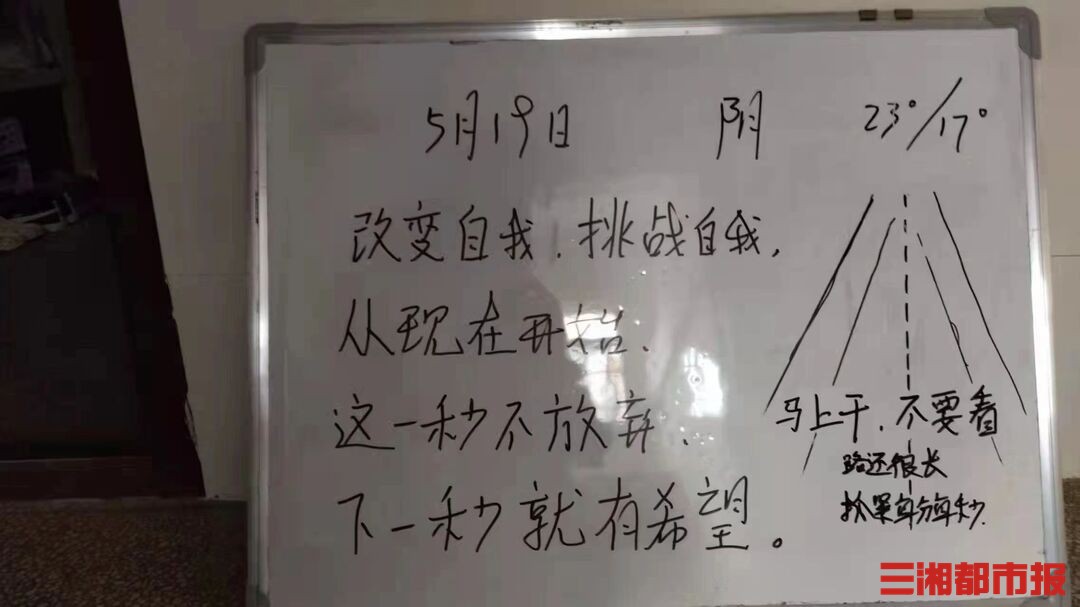 5月19日 阴 23°/17°
改变自我、挑战自我,
从现在开始、
这一秒不放弃、
下一秒就有希望。
马上干、不要看
路还很长
抓紧每分每秒
三湘都市报